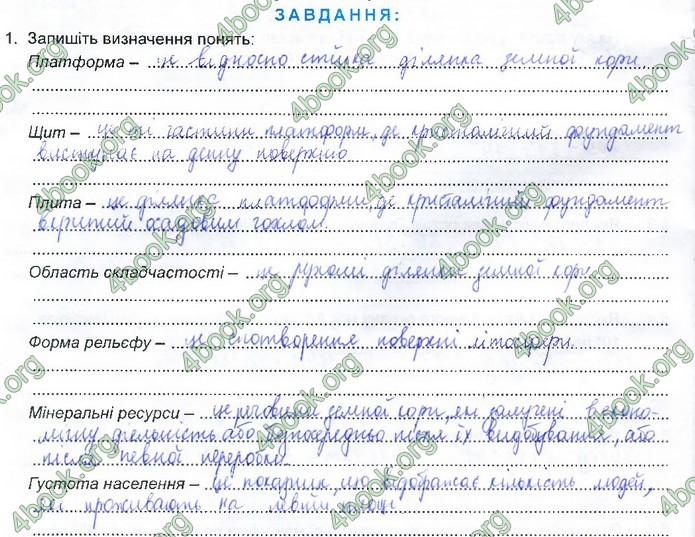 ЗАВДАННЯ:
1. Запишіть визначення понять:
Платформа – це відносно стійка ділянка земної кори
Щит – це ті частини платформ, де кристалічний фундамент
виступає на денну поверхню
Плита – це ділянка платформи, де кристалічний фундамент
вкритий осадовим чохлом.
Область складчастості – це рухомі ділянки земної кори
Форма рельєфу – це спотворення поверхні літосфери.
Мінеральні ресурси – це речовини земної кори, які залучені в еконо-
мічну діяльність або безпосередньо після їх видобування, або
після певної переробки.
Густота населення – це показник, що відображає кількість людей,
які проживають на певній площі
4book.org